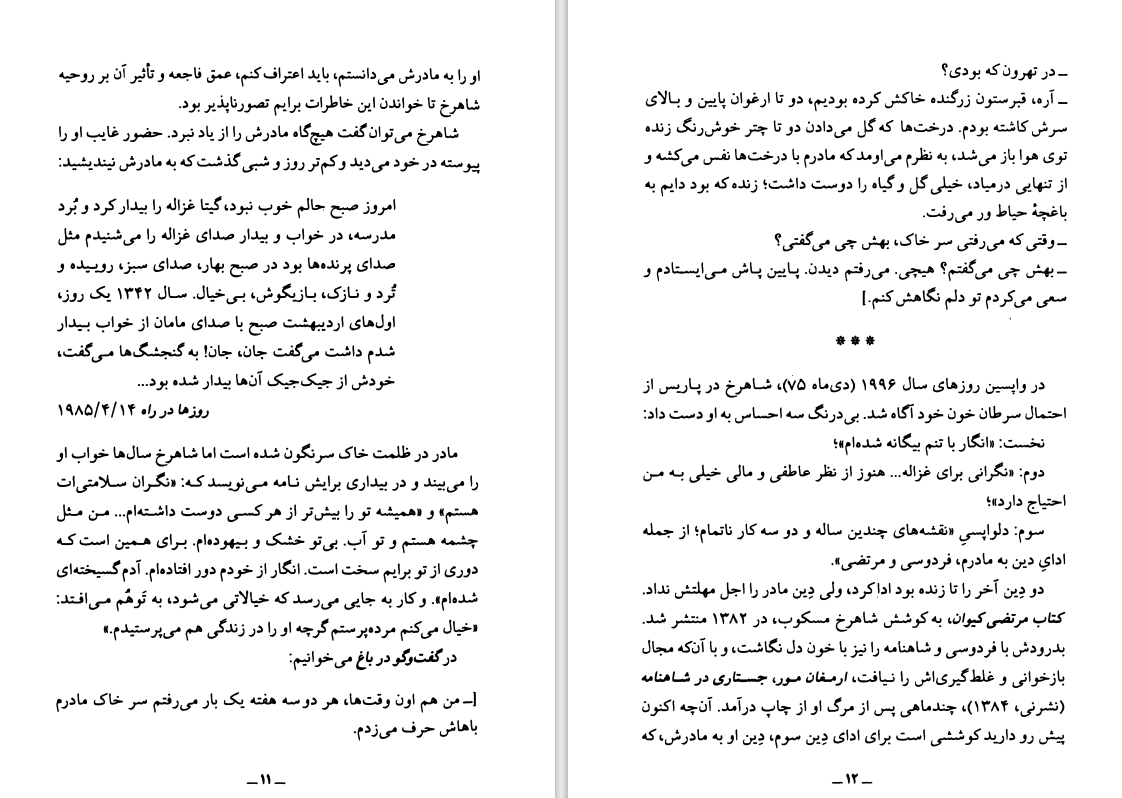 او را به مادرش می‌دانستم، باید اعتراف کنم، عمق فاجعه و تأثیر آن بر روحیه
شاهرخ تا خواندن این خاطرات برایم تصورناپذیر بود.
شاهرخ می‌توان گفت هیچ‌گاه مادرش را از یاد نبرد. حضور غایب او را
پیوسته در خود می‌دید و کم‌تر روز و شبی گذشت که به مادرش نیندیشید:
امروز صبح حالم خوب نبود، گیتا غزاله را بیدار کرد و بُرد
مدرسه، در خواب و بیدار صدای غزاله را می‌شنیدم مثل
صدای پرنده‌ها بود در صبح بهار، صدای سبز، روییده و
تُرد و نازک، بازیگوش، بی‌خیال. سال ۱۳۴۲ یک روز،
اول‌های اردیبهشت صبح با صدای مامان از خواب بیدار
شدم داشت می‌گفت جان، جان! به گنجشگ‌ها می‌گفت،
خودش از جیک‌جیک آن‌ها بیدار شده بود...
روزها در راه ۱۹۸۵/۴/۱۴
مادر در ظلمت خاک سرنگون شده است اما شاهرخ سال‌ها خواب او
را می‌بیند و در بیداری برایش نامه می‌نویسد که: «نگران سلامتی‌ات
هستم» و «همیشه تو را بیش‌تر از هر کسی دوست داشته‌ام... من مثل
چشمه هستم و تو آب. بی‌تو خشک و بیهوده‌ام. برای همین است که
دوری از تو برایم سخت است. انگار از خودم دور افتاده‌ام. آدم گسیخته‌ای
شده‌ام». و کار به جایی می‌رسد که خیالاتی می‌شود، به تَوهُم می‌افتد:
«خیال می‌کنم مرده‌پرستم گرچه او را در زندگی هم می‌پرستیدم.»
در گفت‌وگو در باغ می‌خوانیم:
[ــ من هم اون وقت‌ها، هر دو سه هفته یک بار می‌رفتم سر خاک مادرم
باهاش حرف می‌زدم.
ــ ۱۱ ــ
ــ در تهرون که بودی؟
ــ آره، قبرستون زرگنده خاکش کرده بودیم، دو تا ارغوان پایین و بالای
سرش کاشته بودم. درخت‌ها که گل می‌دادن دو تا چتر خوش‌رنگ زنده
توی هوا باز می‌شد، به نظرم می‌اومد که مادرم با درخت‌ها نفس می‌کشه و
از تنهایی درمیاد، خیلی گل و گیاه را دوست داشت؛ زنده که بود دایم به
باغچهٔ حیاط ور می‌رفت.
ــ وقتی که می‌رفتی سر خاک، بهش چی می‌گفتی؟
ــ بهش چی می‌گفتم؟ هیچی. می‌رفتم دیدن. پایین پاش می‌ایستادم و
سعی می‌کردم تو دلم نگاهش کنم.]
* * *
در واپسین روزهای سال ۱۹۹۶ (دی‌ماه ۷۵)، شاهرخ در پاریس از
احتمال سرطان خون خود آگاه شد. بی‌درنگ سه احساس به او دست داد:
نخست: «انگار با تنم بیگانه شده‌ام»؛
دوم: «نگرانی برای غزاله... هنوز از نظر عاطفی و مالی خیلی به من
احتیاج دارد»؛
سوم: دلواپسیِ «نقشه‌های چندین ساله و دو سه کار ناتمام؛ از جمله
ادایِ دین به مادرم، فردوسی و مرتضی».
دو دِین آخر را تا زنده بود ادا کرد، ولی دِین مادر را اجل مهلتش نداد.
کتاب مرتضی کیوان، به کوشش شاهرخ مسکوب، در ۱۳۸۲ منتشر شد.
بدرودش با فردوسی و شاهنامه را نیز با خون دل نگاشت، و با آن‌که مجال
بازخوانی و غلط‌گیری‌اش را نیافت، ارمغان مور، جستاری در شاهنامه
(نشرنی، ۱۳۸۴)، چندماهی پس از مرگ او از چاپ درآمد. آن‌چه اکنون
پیش رو دارید کوششی است برای ادای دِین سوم، دِین او به مادرش، که
ــ ۱۲ ــ